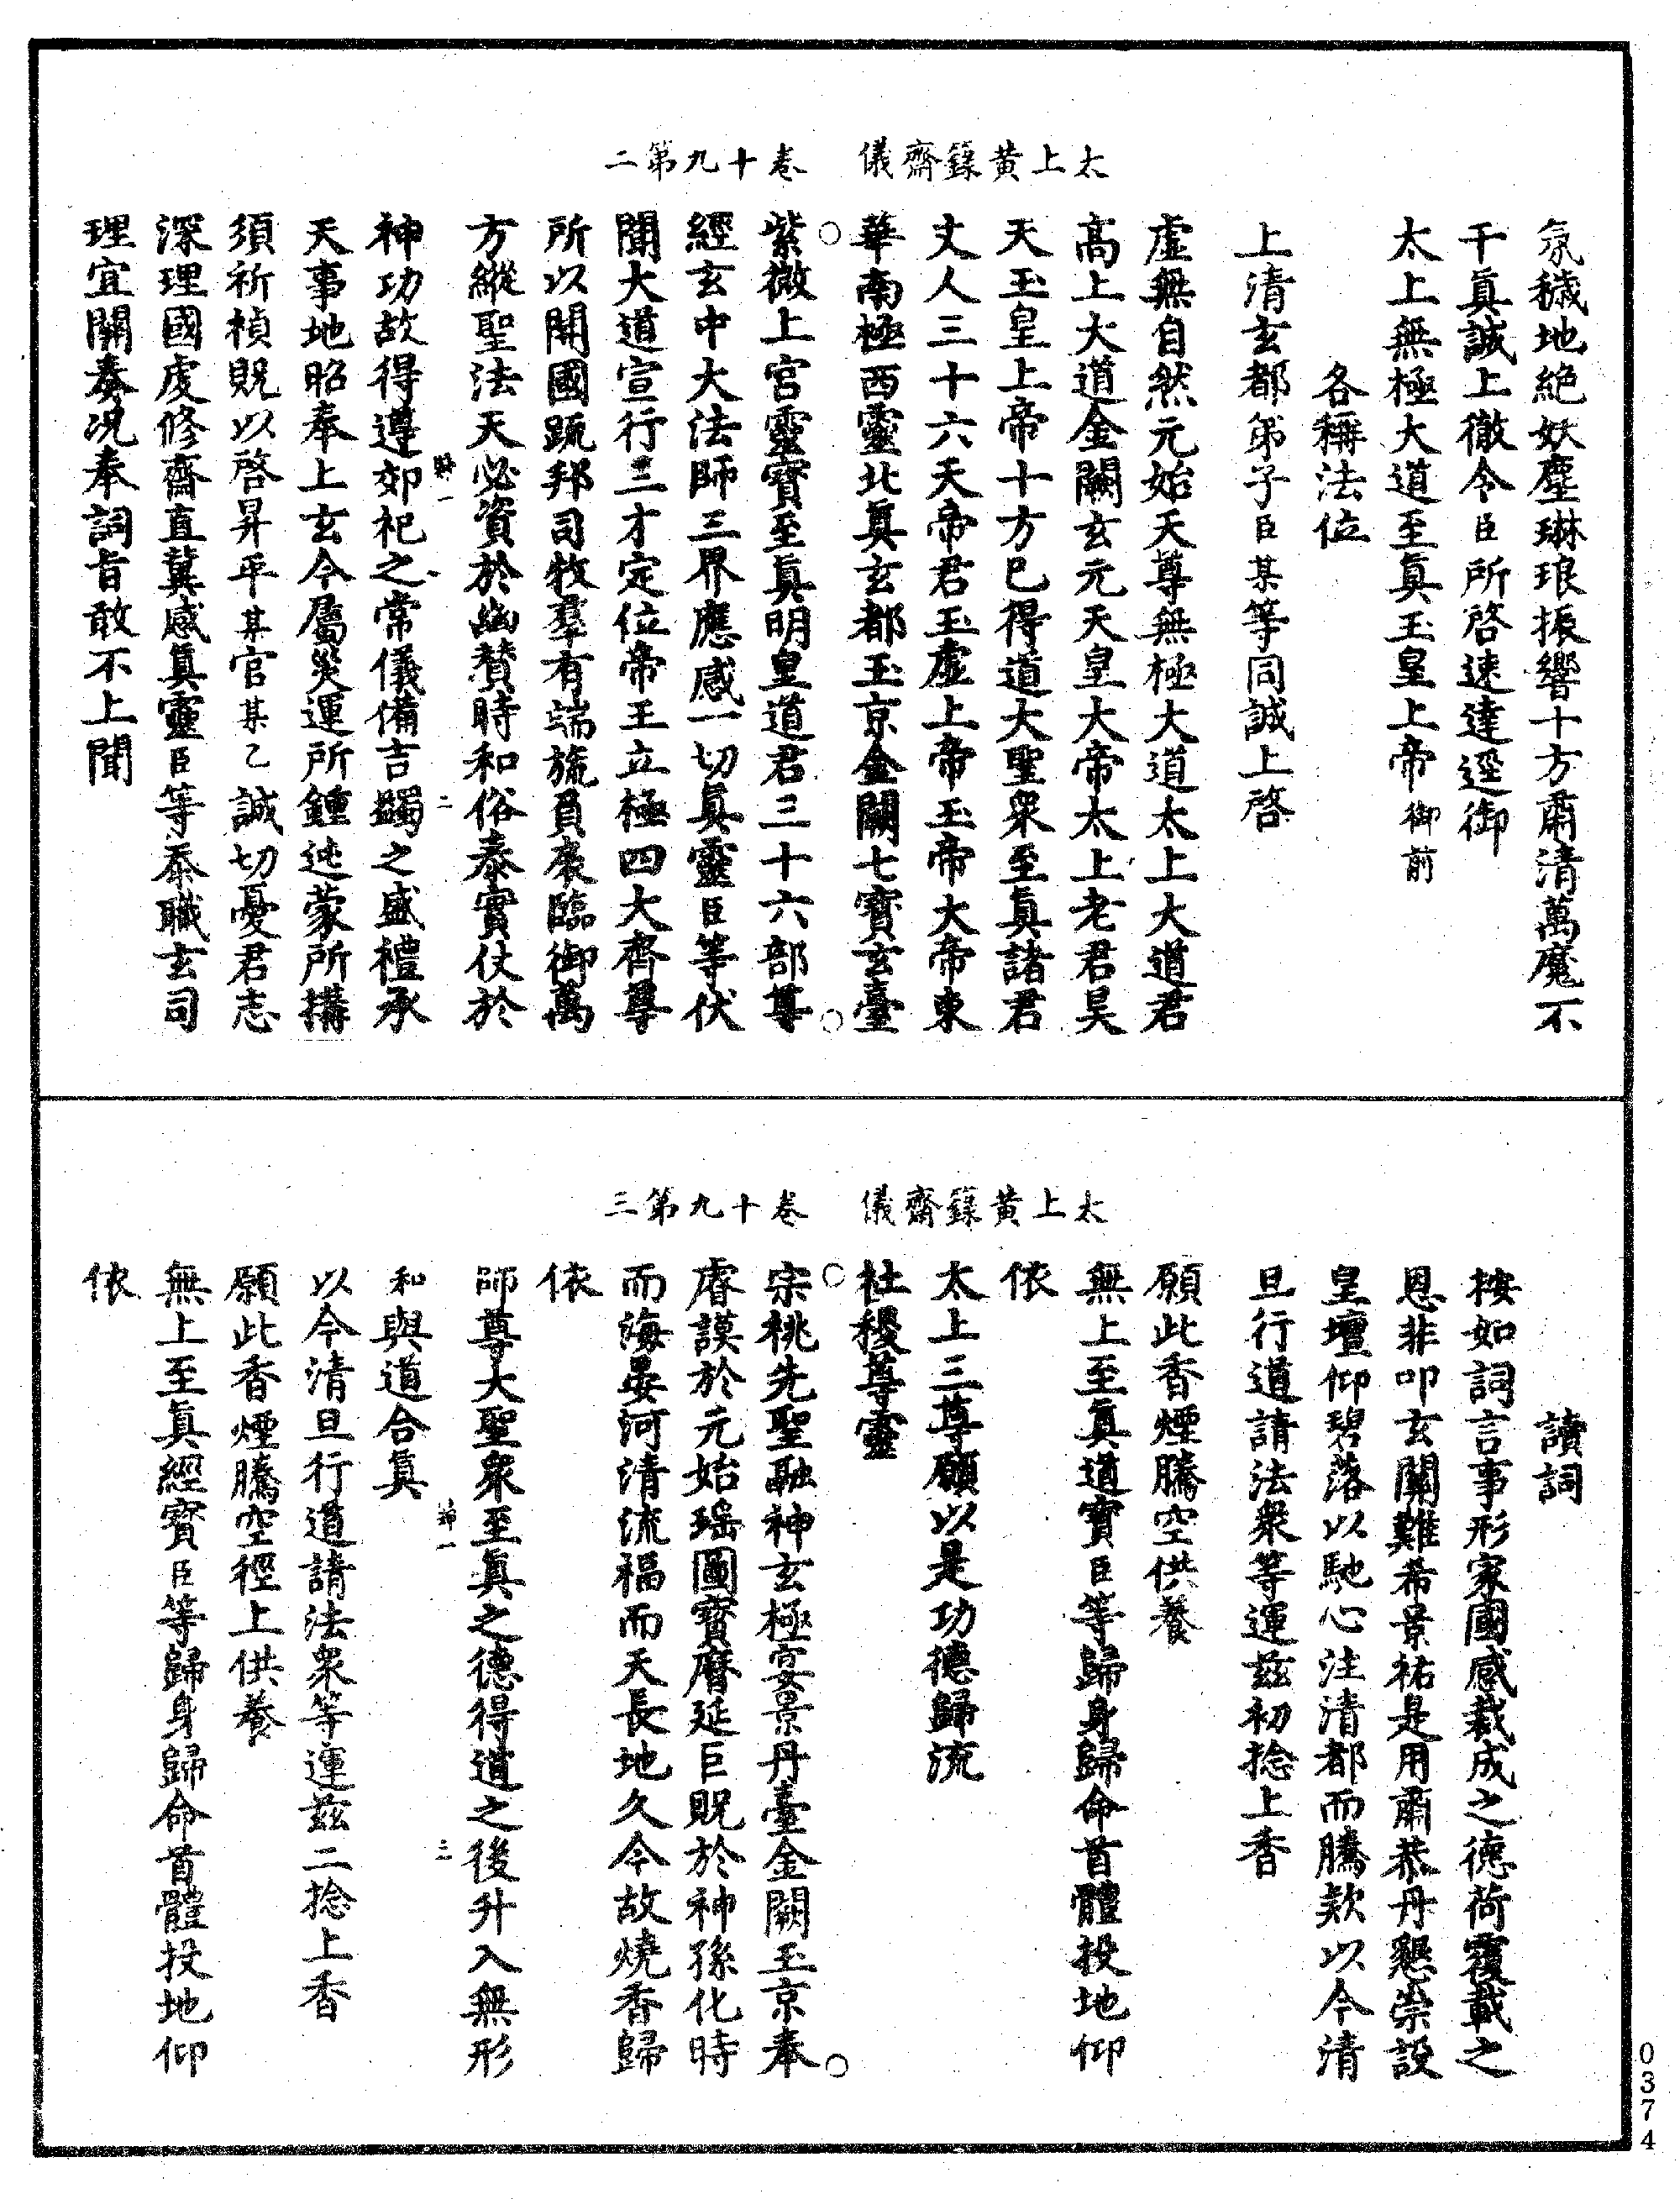 太上黃籙齋儀　卷十九第二
氛穢地絕妖塵琳琅振響十方肅清萬魔不
干眞誠上徹令臣所啓速達逕御
太上無極大道至眞玉皇上帝御前
各稱法位
上清玄都弟子臣某等同誠上啓
虛無自然元始天尊無極大道太上大道君
高上大道金闕玄元天皇大帝太上老君昊
天玉皇上帝十方已得道大聖衆至眞諸君
丈人三十六天帝君玉虛上帝玉帝大帝東
華南極西靈北眞玄都玉京金闕七寶玄臺
紫微上宮靈寶至眞明皇道君三十六部尊
經玄中大法師三界應感一切眞靈臣等伏
聞大道宣行三才定位帝王立極四大齊尊
所以開國疏邦司牧羣有端旒負扆臨御萬
方縱聖法天必資於幽贊時和俗泰實仗於
神功故得遵郊祀之常儀備吉蠲之盛禮承
天事地昭奉上玄今屬災運所鍾迍蒙所搆
須祈禎貺以啓昇平某官某乙誠切憂君志
深理國虔修齋直冀感眞靈臣等忝職玄司
理宜關奏況奉詞旨敢不上聞
太上黃籙齋儀　卷十九第三
讀詞
按如詞言事形家國感裁成之德荷覆載之
恩非叩玄關難希景祐是用肅恭丹懇崇設
皇壇仰碧落以馳心注清都而騰欵以今清
旦行道請法衆等運茲初捻上香
願此香煙騰空供養
無上至眞道寶臣等歸身歸命首體投地仰
依
太上三尊願以是功德歸流
社稷尊靈
宗祧先聖融神玄極宴景丹臺金闕玉京奉
睿謨於元始瑤圖寶曆延巨貺於神孫化時
而海晏河清流福而天長地久今故燒香歸
依
師尊大聖衆至眞之德得道之後升入無形
和與道合眞
以今清旦行道請法衆等運茲二捻上香
願此香煙騰空徑上供養
無上至眞經寶臣等歸身歸命首體投地仰
依
0374